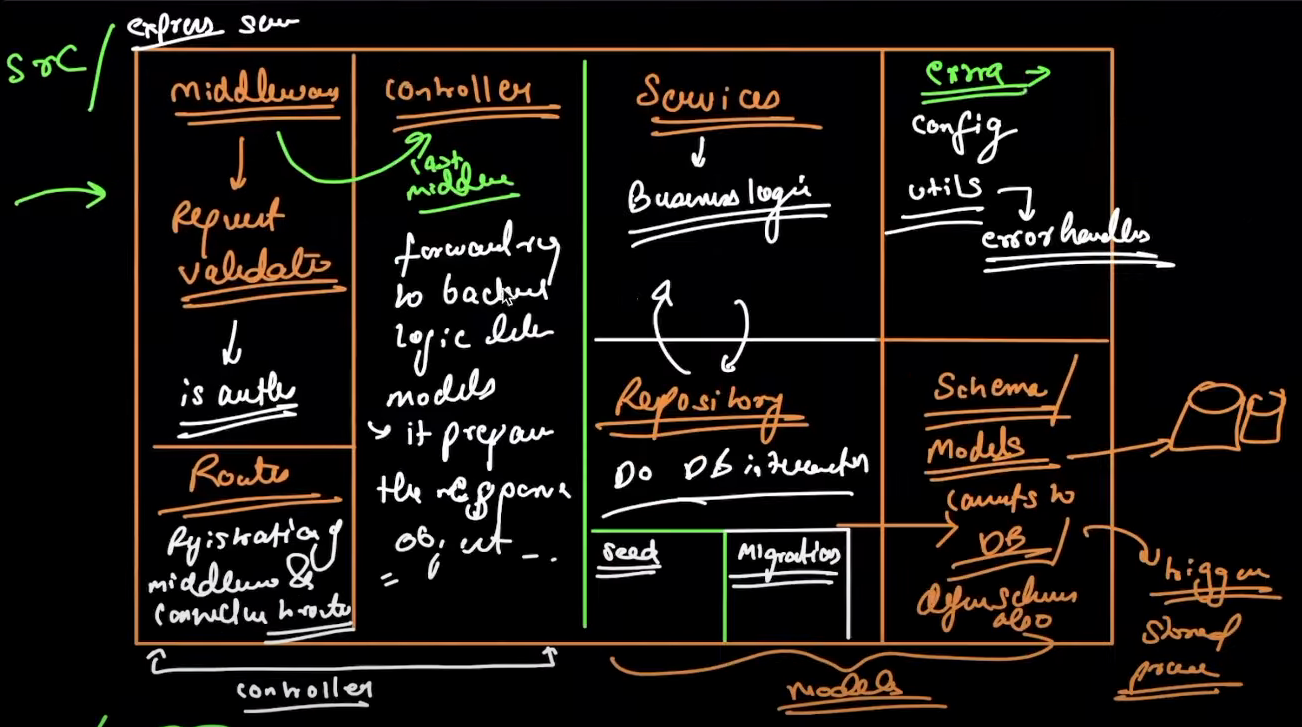 src/
express serv
middleware
Request
validator
is auth
Routes
Registration of
middleware &
controller to route
controller
last
middleware
forward req
to
logic
models
it prepare
the response
object - .
Services
Business logic
Repository
Do DB interaction
seed
Migrations
extra
config
utils
error handlers
Schema/
Models
connects to
DB/
define schema
also
trigger
stored
procedure
controller
models